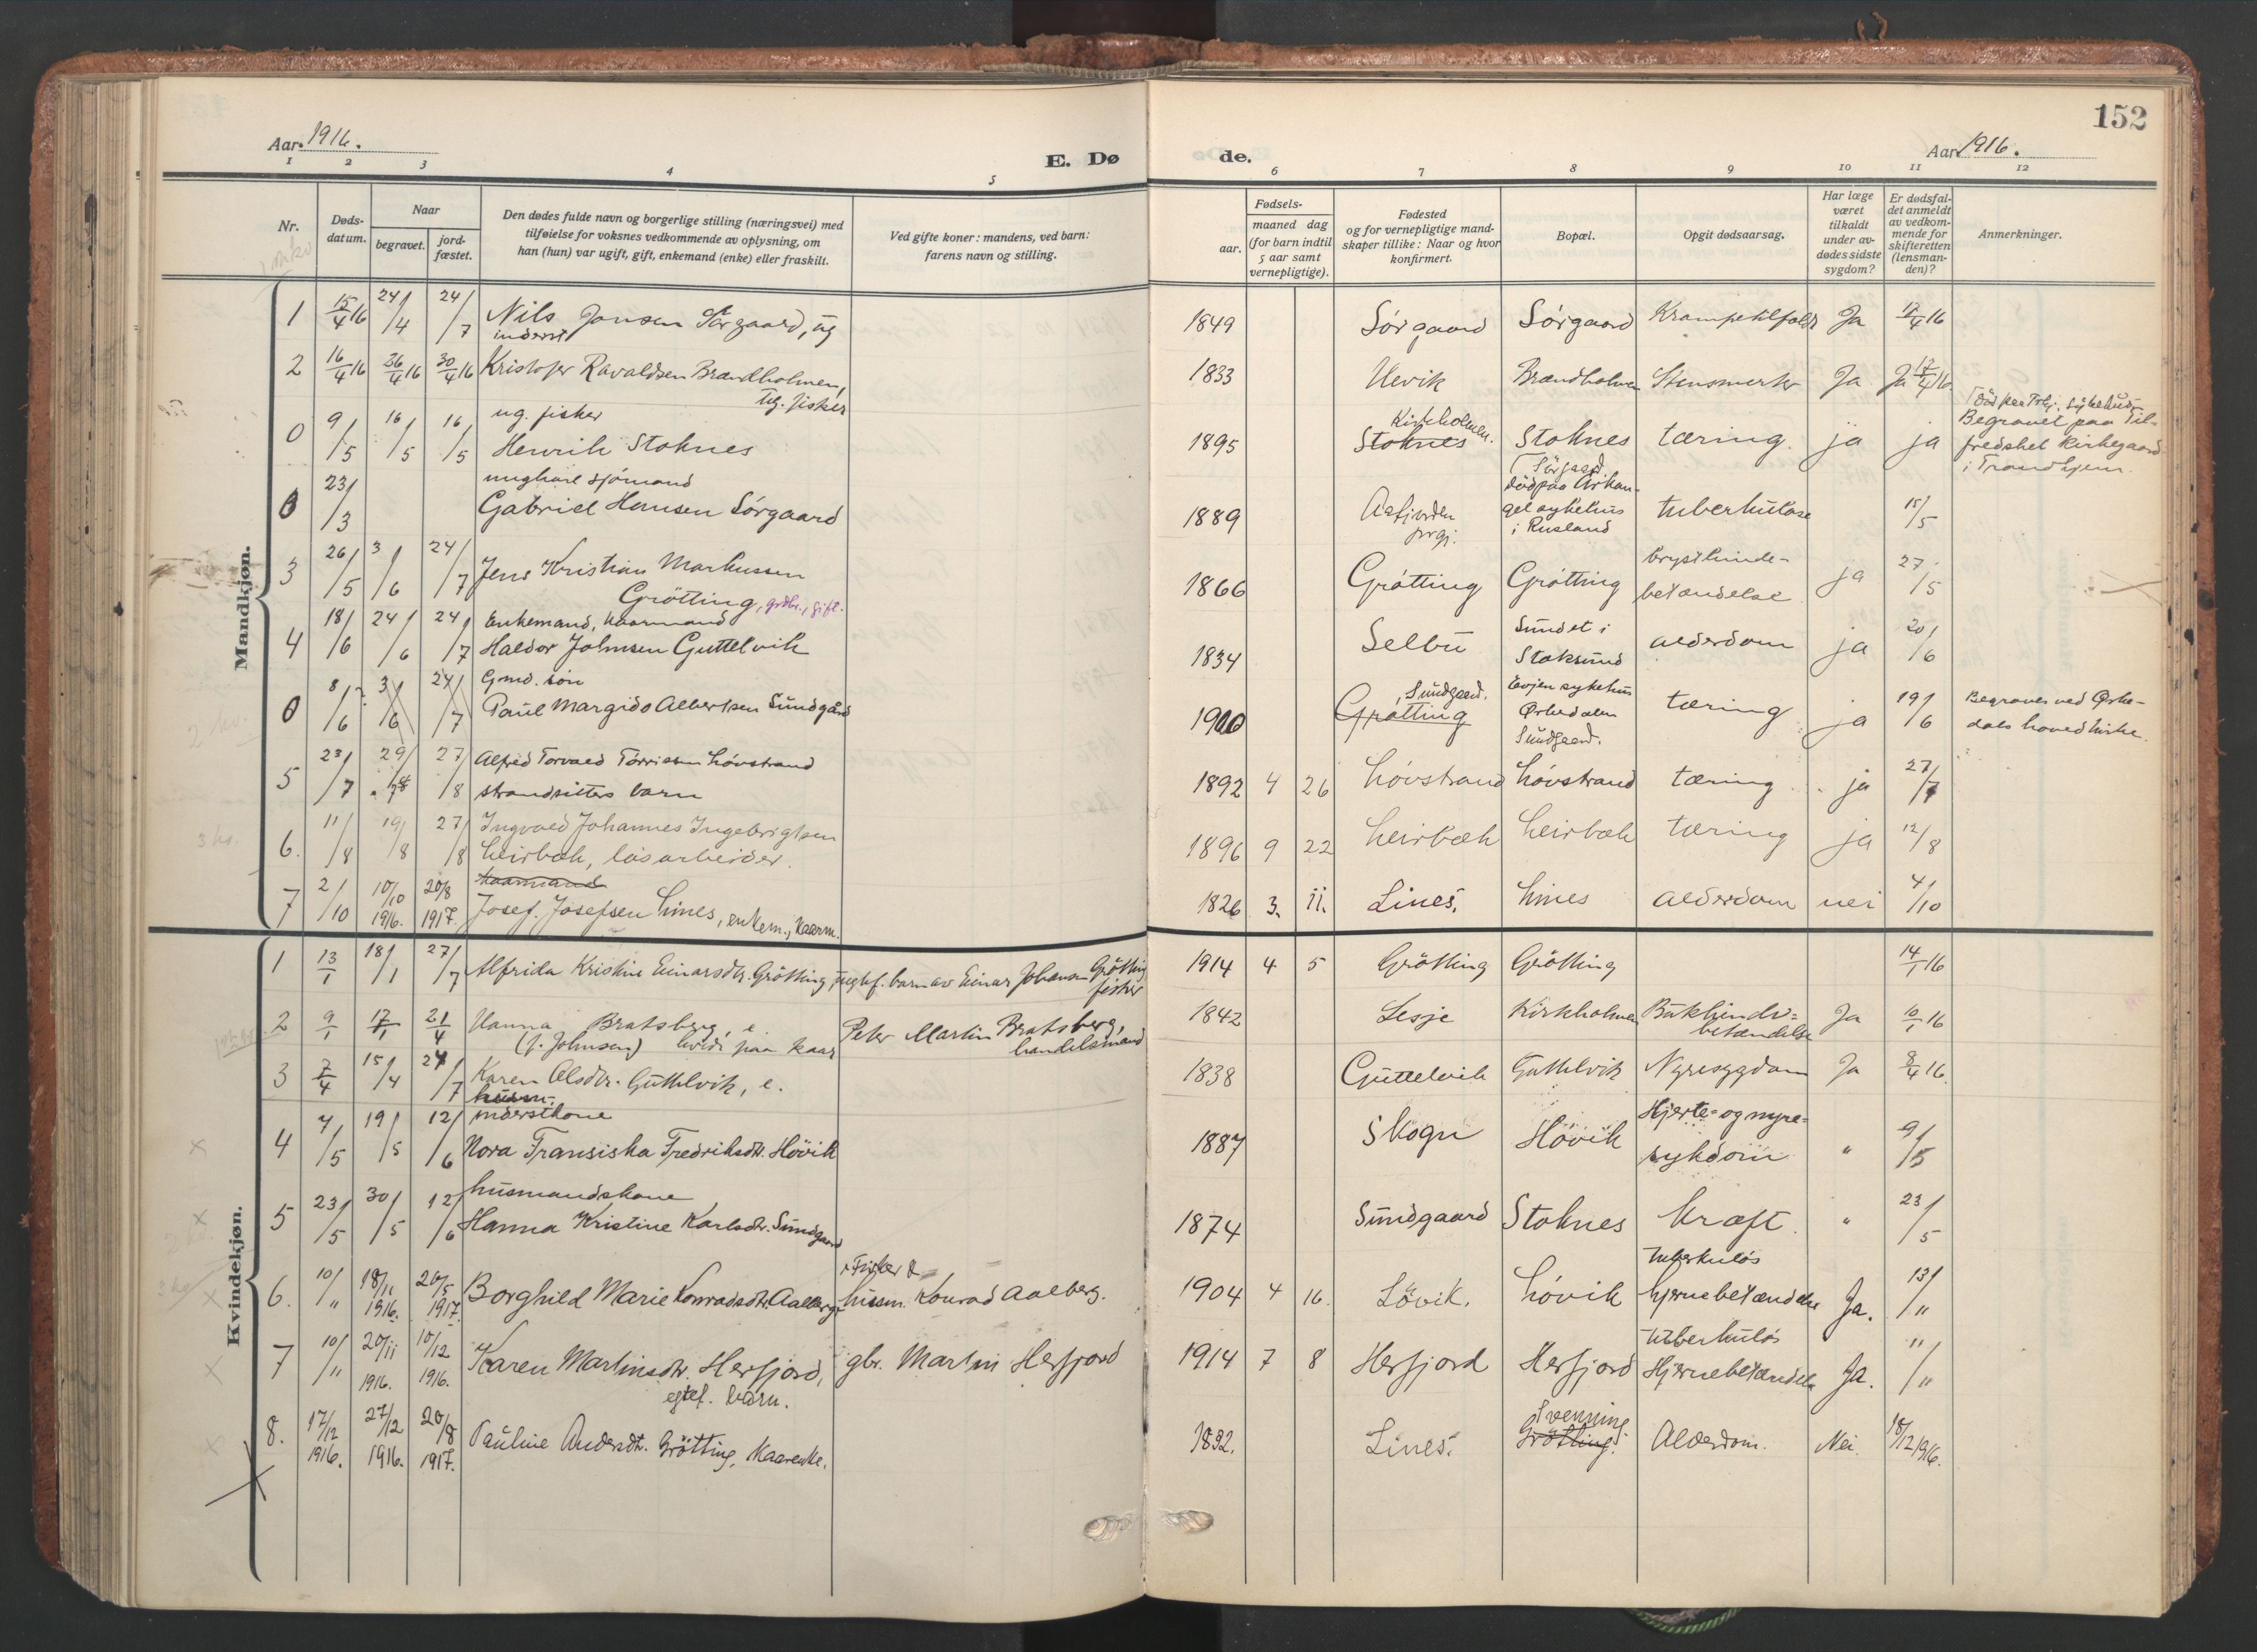 152
Aar. 1916.
E. Dø
de.
Aar 1916.
1 2 3 4 5 6 7 8 9 10 11 12
Nr.
Døds-
datum.
Naar
begravet.
jord-
fæstet.
Den dødes fulde navn og borgerlige stilling (næringsvei) med
tilføielse for voksnes vedkommende av oplysning, om
han (hun) var ugift, gift, enkemand (enke) eller fraskilt.
Ved gifte koner: mandens, ved barn:
farens navn og stilling.
Fødsels-
aar.
maaned dag
(for barn indtil
5 aar samt
vernepligtige).
Fødested
og for vernepligtige mand-
skaper tillike: Naar og hvor
konfirmert.
Bopæl.
Opgit dødsaarsag.
Har læge
været
tilkaldt
under av-
dødes sidste
sygdom?
Er dødsfal-
det anmeldt
av vedkom-
mende for
skifteretten
(lensman-
den)?
Anmerkninger.
Mandkjøn.
1 15/4 16 24/4 24/7 Nils Jonsen Sørgaard, ug
inderst
1849 Sørgaard Sørgaard Krampetilfald Ja 17/4 16
2 16/4 16 26/4 16 30/4 16 Kristofer Ravaldsen Brandholmen,
ug. fisker
1833 Uevik Brandholmen Stensmerter Ja Ja 17/4 16
0 9/5 16/5 16/5 ug. fisker
Henrik Stoknes
1895 Kirkholmen.
Stoknes Stoknes tæring. ja ja
Død paa Trhj. sykehus
Begravet paa Til-
fredshet Kirkegaard
i Trondhjem.
0 23/3 ungkarl sjömand
Gabriel Hansen Sørgaard
1889 Aafjorden
prgj.
Sørgaard.
død paa Arkan-
gel sykehus
i Rusland
tuberkulose 15/5
3 26/5 3/6 24/7 Jens Kristian Markussen
Grötting, grdbr., gift.
1866 Grötting Grötting brysthinde-
betændelse ja 27/5
4 18/6 24/6 24/7 Enkemand, kaarmand
Haldor Johnsen Guttelvik
1834 Selbu Sundet i
Stoksund alderdom ja 20/6
0 8/6 3/6 24/7 Gmd. sön
Paul Margido Albertsen Sundgård
1900 Sundgaard.
Grötting
Evjen sykehus
Ørkedalen
Sundgaard.
tæring ja 19/6 Begraves ved Ørke-
dals hovedkirke.
5 23/7 29/7 27/8 Alfred Torvald Torrissen Lövstrand
strandsitters barn
1892 4 26 Lövstrand Lövstrand tæring ja 27/7
6. 11/8 19/8 27/8 Ingvald Johannes Ingebrigtsen
Leirbæk, løsarbeider.
1896 9 22 Leirbæk Leirbæk tæring ja 12/8
7 2/10 10/10 1916. 20/8 1917. kaarmand
Josef Josefsen Lines, enkem., kaarm.
1826 3. 11. Lines. Lines alderdom nei 4/10
Kvindekjøn.
1 13/1 18/1 27/7 Alfrida Kristine Einarsdtr. Grötting, ugtef. barn av Einar Johansen Grötting
fisker
1914 4 5 Grötting Grötting 14/1 16
2 9/1 17/1 21/4 Hanna Bratsberg, e.
(f. Johnsen) levede paa kaar
Peter Martin Bratsberg,
handelsmand
1842 Lesje Kirkholmen Bukhinde-
betændelse Ja 10/1 16
3 7/4 15/4 24/7 Karen Olsdtr. Guttelvik, e.
husm.
1838 Guttelvik Guttelvik Nyresygdom Ja 8/4 16.
4 7/5 19/5 12/6 inderstkone
Nora Fransiska Fredriksdtr. Hövik
1887 Skogn Hövik Hjerte- og nyre-
sykdom " 9/5
5 23/5 30/5 12/6 husmandskone
Hanna Kristine Karlsdtr. Sundgaard
1874 Sundgaard Stoknes kræft. " 23/5
6. 10/" 18/11 1916. 20/5 1917. Borghild Marie Konradsdtr. Aalberg
Fisker &
husm. Konrad Aalberg.
1904 4 16. Lövik. Lövik tuberkuløs
hjernebetændelse Ja. 13/"
7 10/" 20/11 1916. 10/12 1916. Karen Martinsdtr. Herfjord,
egtef. barn.
gbr. Martin Herfjord
1914 7 8 Herfjord Herfjord tuberkuløs
Hjernebetændelse Ja. "/"
8. 17/12 1916. 27/12 1916. 20/8 1917. Pauline Andersdtr. Grötting, Kaarenke.
1832. Lines. Svenning
Grötting. Alderdom. Nei. 18/12 1916.